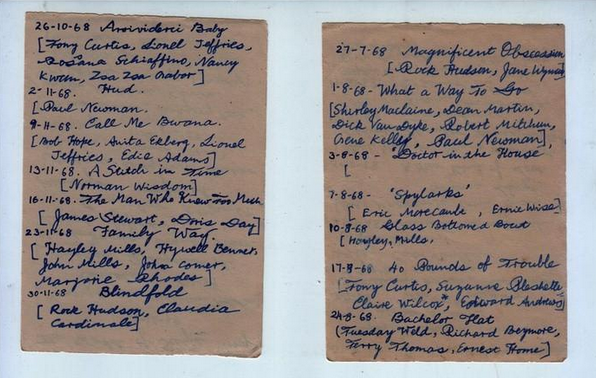 26-10-68 Arrividerci Baby
[Tony Curtis, Lionel Jeffries,
Rosana Schiaffino, Nancy
Kwan, Zsa Zsa Gabor]
2-11-68. Hud.
[Paul Newman.
9-11-68. Call Me Bwana.
[Bob Hope, Anita Ekberg, Lionel
Jeffries, Edie Adams]
13-11-68. A Stitch in Time
[Norman Wisdom]
16-11-68. The Man Who Knew Too Much
[James Stewart, Doris Day]
23-11-68 Family Way.
[Hayley Mills, Hywell Bennet,
John Mills, John Comer,
Marjorie Rhodes]
30-11-68 Blindfold
[Rock Hudson, Claudia
Cardinale]
27-7-68 Magnificent Obscession
[Rock Hudson, Jane Wyman]
1-8-68 - What a Way To Go
[Shirley Maclaine, Dean Martin,
Dick Van Dyke, Robert Mitchum,
Gene Kelley, Paul Newman],
3-8-68 - "Doctor in the House
[
7-8-68 - "Spylarks"
[Eric Morecambe, Ernie Wise]
10-8-68 Glass Bottomed Boat
[Hayley, Mills,
17-8-68 40 Pounds of Trouble
[Tony Curtis, Suzanne Pleshette
Claire Wilcox, Edward Andrews]
24-8-68. Bachelor Flat
(Tuesday Weld, Richard Beymore,
Terry Thomas, Ernest Home]